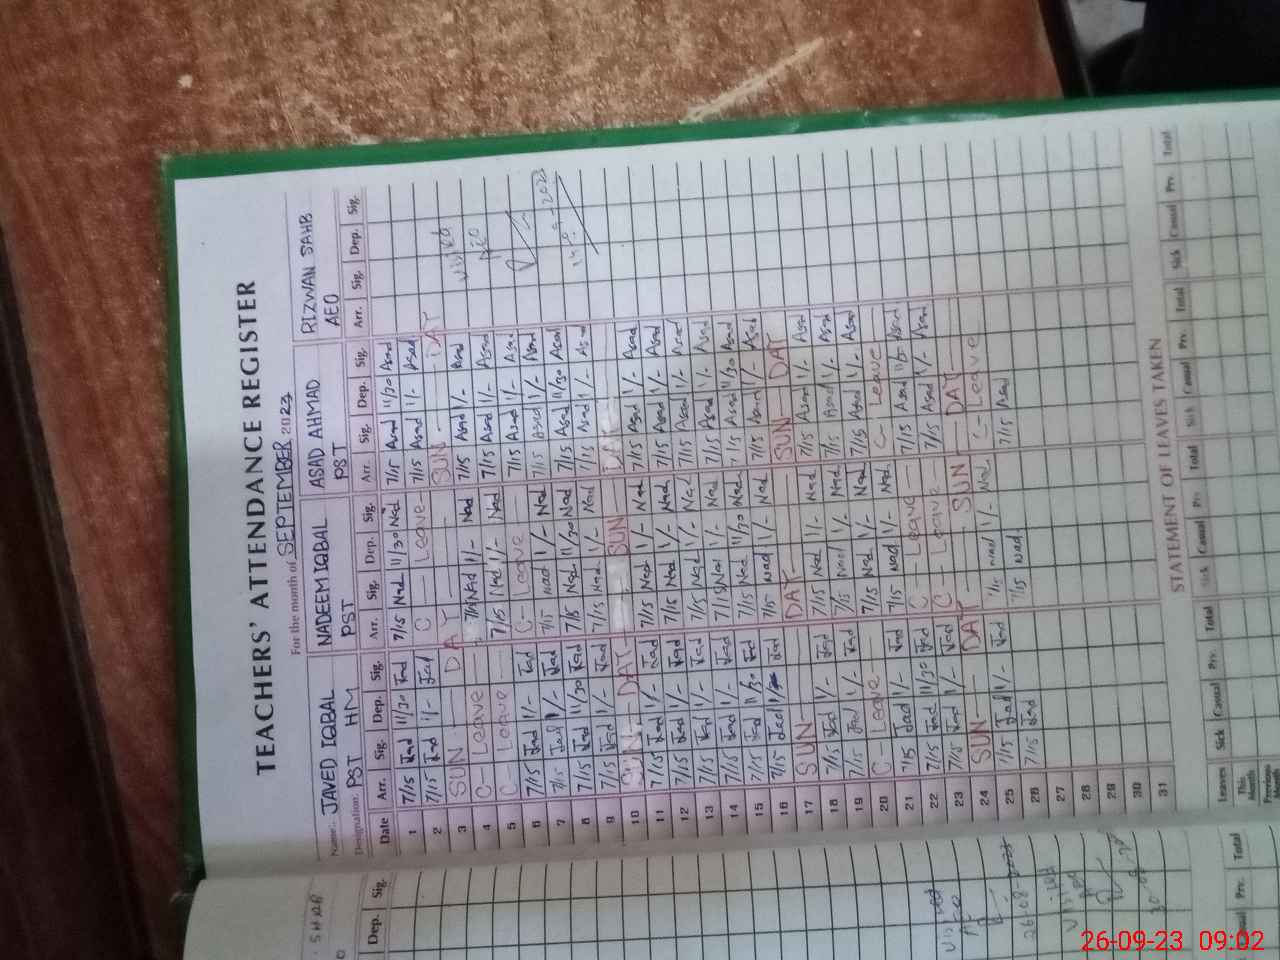 TEACHERS' ATTENDANCE REGISTER
For the month of SEPTEMBER 2023
Name: JAVED IQBAL NADEEM IQBAL ASAD AHMAD RIZWAN SAHB
Designation: PST HM PST PST AEO
Date Arr. Sig. Dep. Sig. Arr. Sig. Dep. Sig. Arr. Sig. Dep. Sig. Arr. Sig. Dep. Sig.
1 7/15 Jad 11/30 Jad 7/15 Nad 11/30 Nad 7/15 Asad 11/30 Asad
2 7/15 Jad 1/- Jad C - Leave - 7/15 Asad 1/- Asad
3 SUN DAY SUN DAY
4 C - Leave - 7/15 Nad 1/- Nad 7/15 Asad 1/- Asad Visited
5 C - Leave - 7/15 Nad 1/- Nad 7/15 Asad 1/- Asad
6 7/15 Jad 1/- Jad C - Leave - 7/15 Asad 1/- Asad
7 7/15 Jad 1/- Jad 7/15 Nad 1/- Nad 7/15 Asad 1/- Asad
8 7/15 Jad 11/30 Jad 7/15 Nad 11/30 Nad 7/15 Asad 11/30 Asad
9 7/15 Jad 1/- Jad 7/15 Nad 1/- Nad 7/15 Asad 1/- Asad
10 SUN DAY SUN DAY
11 7/15 Jad 1/- Jad 7/15 Nad 1/- Nad 7/15 Asad 1/- Asad
12 7/15 Jad 1/- Jad 7/15 Nad 1/- Nad 7/15 Asad 1/- Asad
13 7/15 Jad 1/- Jad 7/15 Nad 1/- Nad 7/15 Asad 1/- Asad
14 7/15 Jad 1/- Jad 7/15 Nad 1/- Nad 7/15 Asad 1/- Asad
15 7/15 Jad 11/30 Jad 7/15 Nad 11/30 Nad 7/15 Asad 11/30 Asad
16 7/15 Jad Jad 7/15 Nad 1/- Nad 7/15 Asad 1/- Asad
17 SUN DAY SUN DAY
18 7/15 Jad 1/- Jad 7/15 Nad 1/- Nad 7/15 Asad 1/- Asad
19 7/15 Jad 1/- Jad 7/15 Nad 1/- Nad 7/15 Asad 1/- Asad
20 C - Leave - 7/15 Nad 1/- Nad 7/15 Asad 1/- Asad
21 7/15 Jad 1/- Jad 7/15 Nad 1/- Nad C - Leave
22 7/15 Jad 11/30 Jad C - Leave - 7/15 Asad Asad
23 7/15 Jad 1/- Jad C - Leave 7/15 Asad 1/- Asad
24 SUN DAY SUN DAY
25 7/15 Jad 1/- Jad 7/15 Nad 1/- Nad C - Leave
26 7/15 Jad 7/15 Nad 7/15 Asad
27
28
29
30
31
STATEMENT OF LEAVES TAKEN
Leaves Sick Casual Prv. Total Sick Casual Prv. Total Sick Casual Prv. Total Sick Casual Prv. Total
This Month
Previous Month
SHAB
Dep. Sig.
Visited
26-08-2023
Visited
Prv. Total
26-09-23 09:02